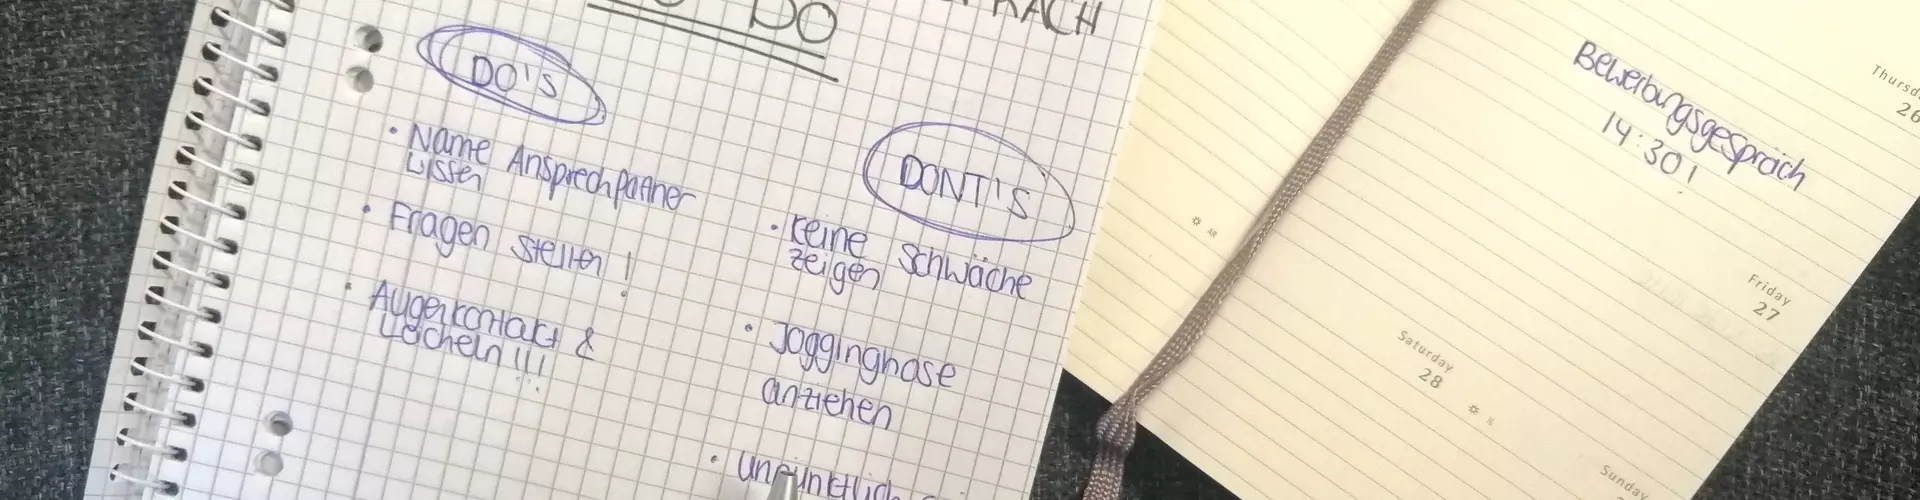 DO
DO'S
• Name Ansprechpartner
wissen
• Fragen stellen!
• Augenkontakt &
Lächeln!!!
DONT'S
• keine Schwäche
zeigen
• Jogginghose
anziehen
Bewerbungsgespräch
14:30!
26
Friday
27
Saturday
28
Sunday